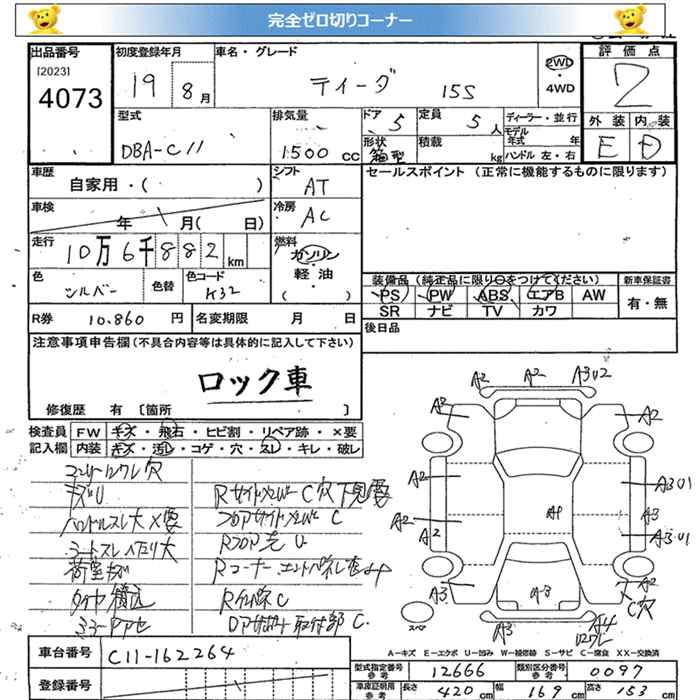 完全ゼロ切りコーナー
出品番号 初度登録年月 車名・グレード 評価点
[2023] 19 8月 ティーダ 15S 2WD・4WD 2
4073
型式 排気量 ドア 定員 ディーラー・並行 外装 内装
DBA-C11 1500cc 5 5人 モデル年式 年 E D
形状 箱型 積載 kg ハンドル 左・右
車歴 自家用・( ) シフト AT セールスポイント (正常に機能するものに限ります)
車検 年 月( 日) 冷房 AC
走行 10万6千882km 燃料 ガソリン
軽油
( )
色 シルバー 色替 色コード K32 装備品(純正品に限り○をつけてください) 新車保証書
PS PW ABS エアB AW 有・無
SR ナビ TV カワ
R券 10,860円 名変期限 月 日 後日品
注意事項申告欄(不具合内容等は具体的に記入して下さい)
ロック車
修復歴 有 [箇所 ]
検査員 FW キズ・飛石・ヒビ割・リペア跡・×要
記入欄 内装 キズ・汚レ・コゲ・穴・スレ・キレ・破レ
キズU
ハンドルスレ大×要
シートスレ ヘタリ大
荷室キズ
タイヤ積込
Rサイドメンバー C穴 下見要
フロアサイドメンバー C
Rフロア先 U
A2 A2 A3U2
A2 A2
A2 A3U1
A2 A1 A3
A2 A3U1
A3 A2
C穴
スペア A3 A4
A-キズ E-エクボ U-凹み W-補修跡 S-サビ C-腐食 XX-交換済
車台番号 C11-162264
型式指定番号 参考 12666 類別区分番号 参考 0097
登録番号
車庫証明用 参考 長さ 420cm 幅 169cm 高さ 153cm